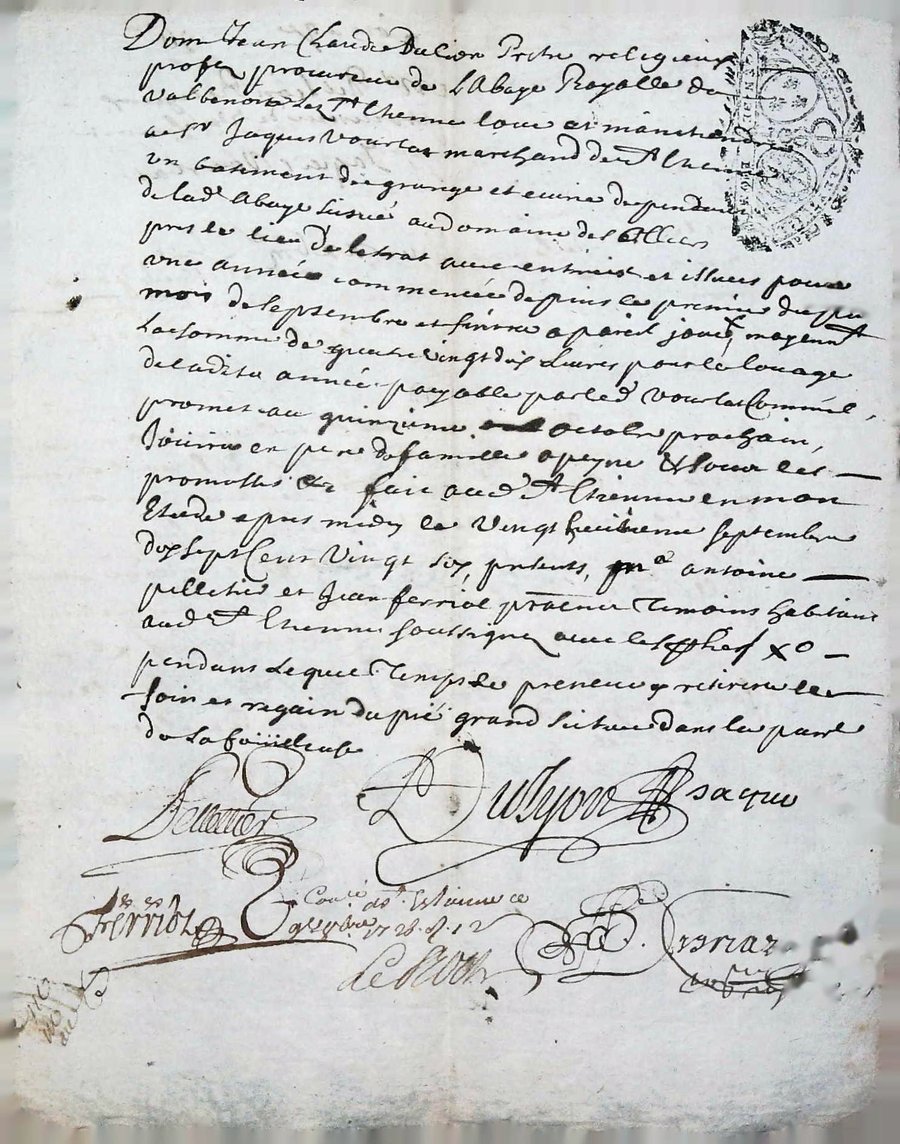 Dom Jean Claude Dulion Prêtre religieux
profez procureur de L'Abaye Royalle de
valbenoite Lez St Etienne loue et maintiendra
a Sr Jaques vourlat marchand de St Etienne
un batiment de grange et ecurie dependant
de lad Abaye Situé au domaine des
prés le lieu de letrat avec entrées et issues pour
une année commencée depuis le premier du pnt
mois de septembre et finira a pareil jour, moyennt
La somme de quatre vingt dix Livres pour le louage
de ladite année payable par led vourlat Comme il
promet au quinzieme octobre prochain,
Jouira en pere de famille a peyne &
promettts &c fait aud St Etienne en mon
Etude apres midy le vingt huitieme septembre
dix sept Cent vingt six, presents, antoine
pelletier et Jean ferriol praticien Temoins habitans
aud St Etienne soussignez avec les
pendant Lequel Temps le preneur retirera les
foin et regain du pré grand situé dans le
de la fouilleuse
Pelletier
Dulyon
Jaque
Ferriol
Conlé a St Estienne ce
1726